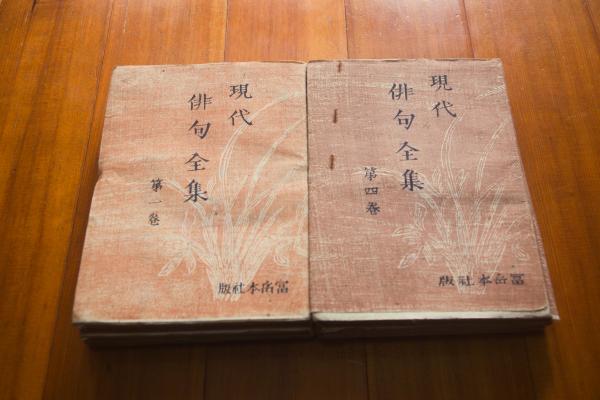 現代
俳句全集
第一卷
冨岳本社版
現代
俳句全集
第四卷
冨岳本社版